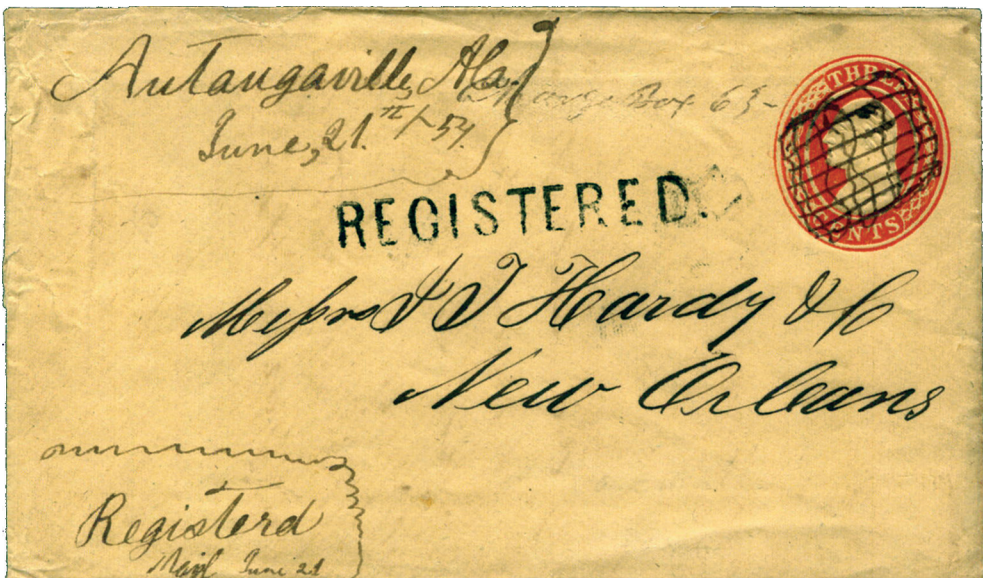 Autaugaville, Ala.
June, 21. /54.
Charge Box 63-
THREE
CENTS
REGISTERED.
Messrs J J Hardy & Co
New Orleans
Registerd
Mail June 21